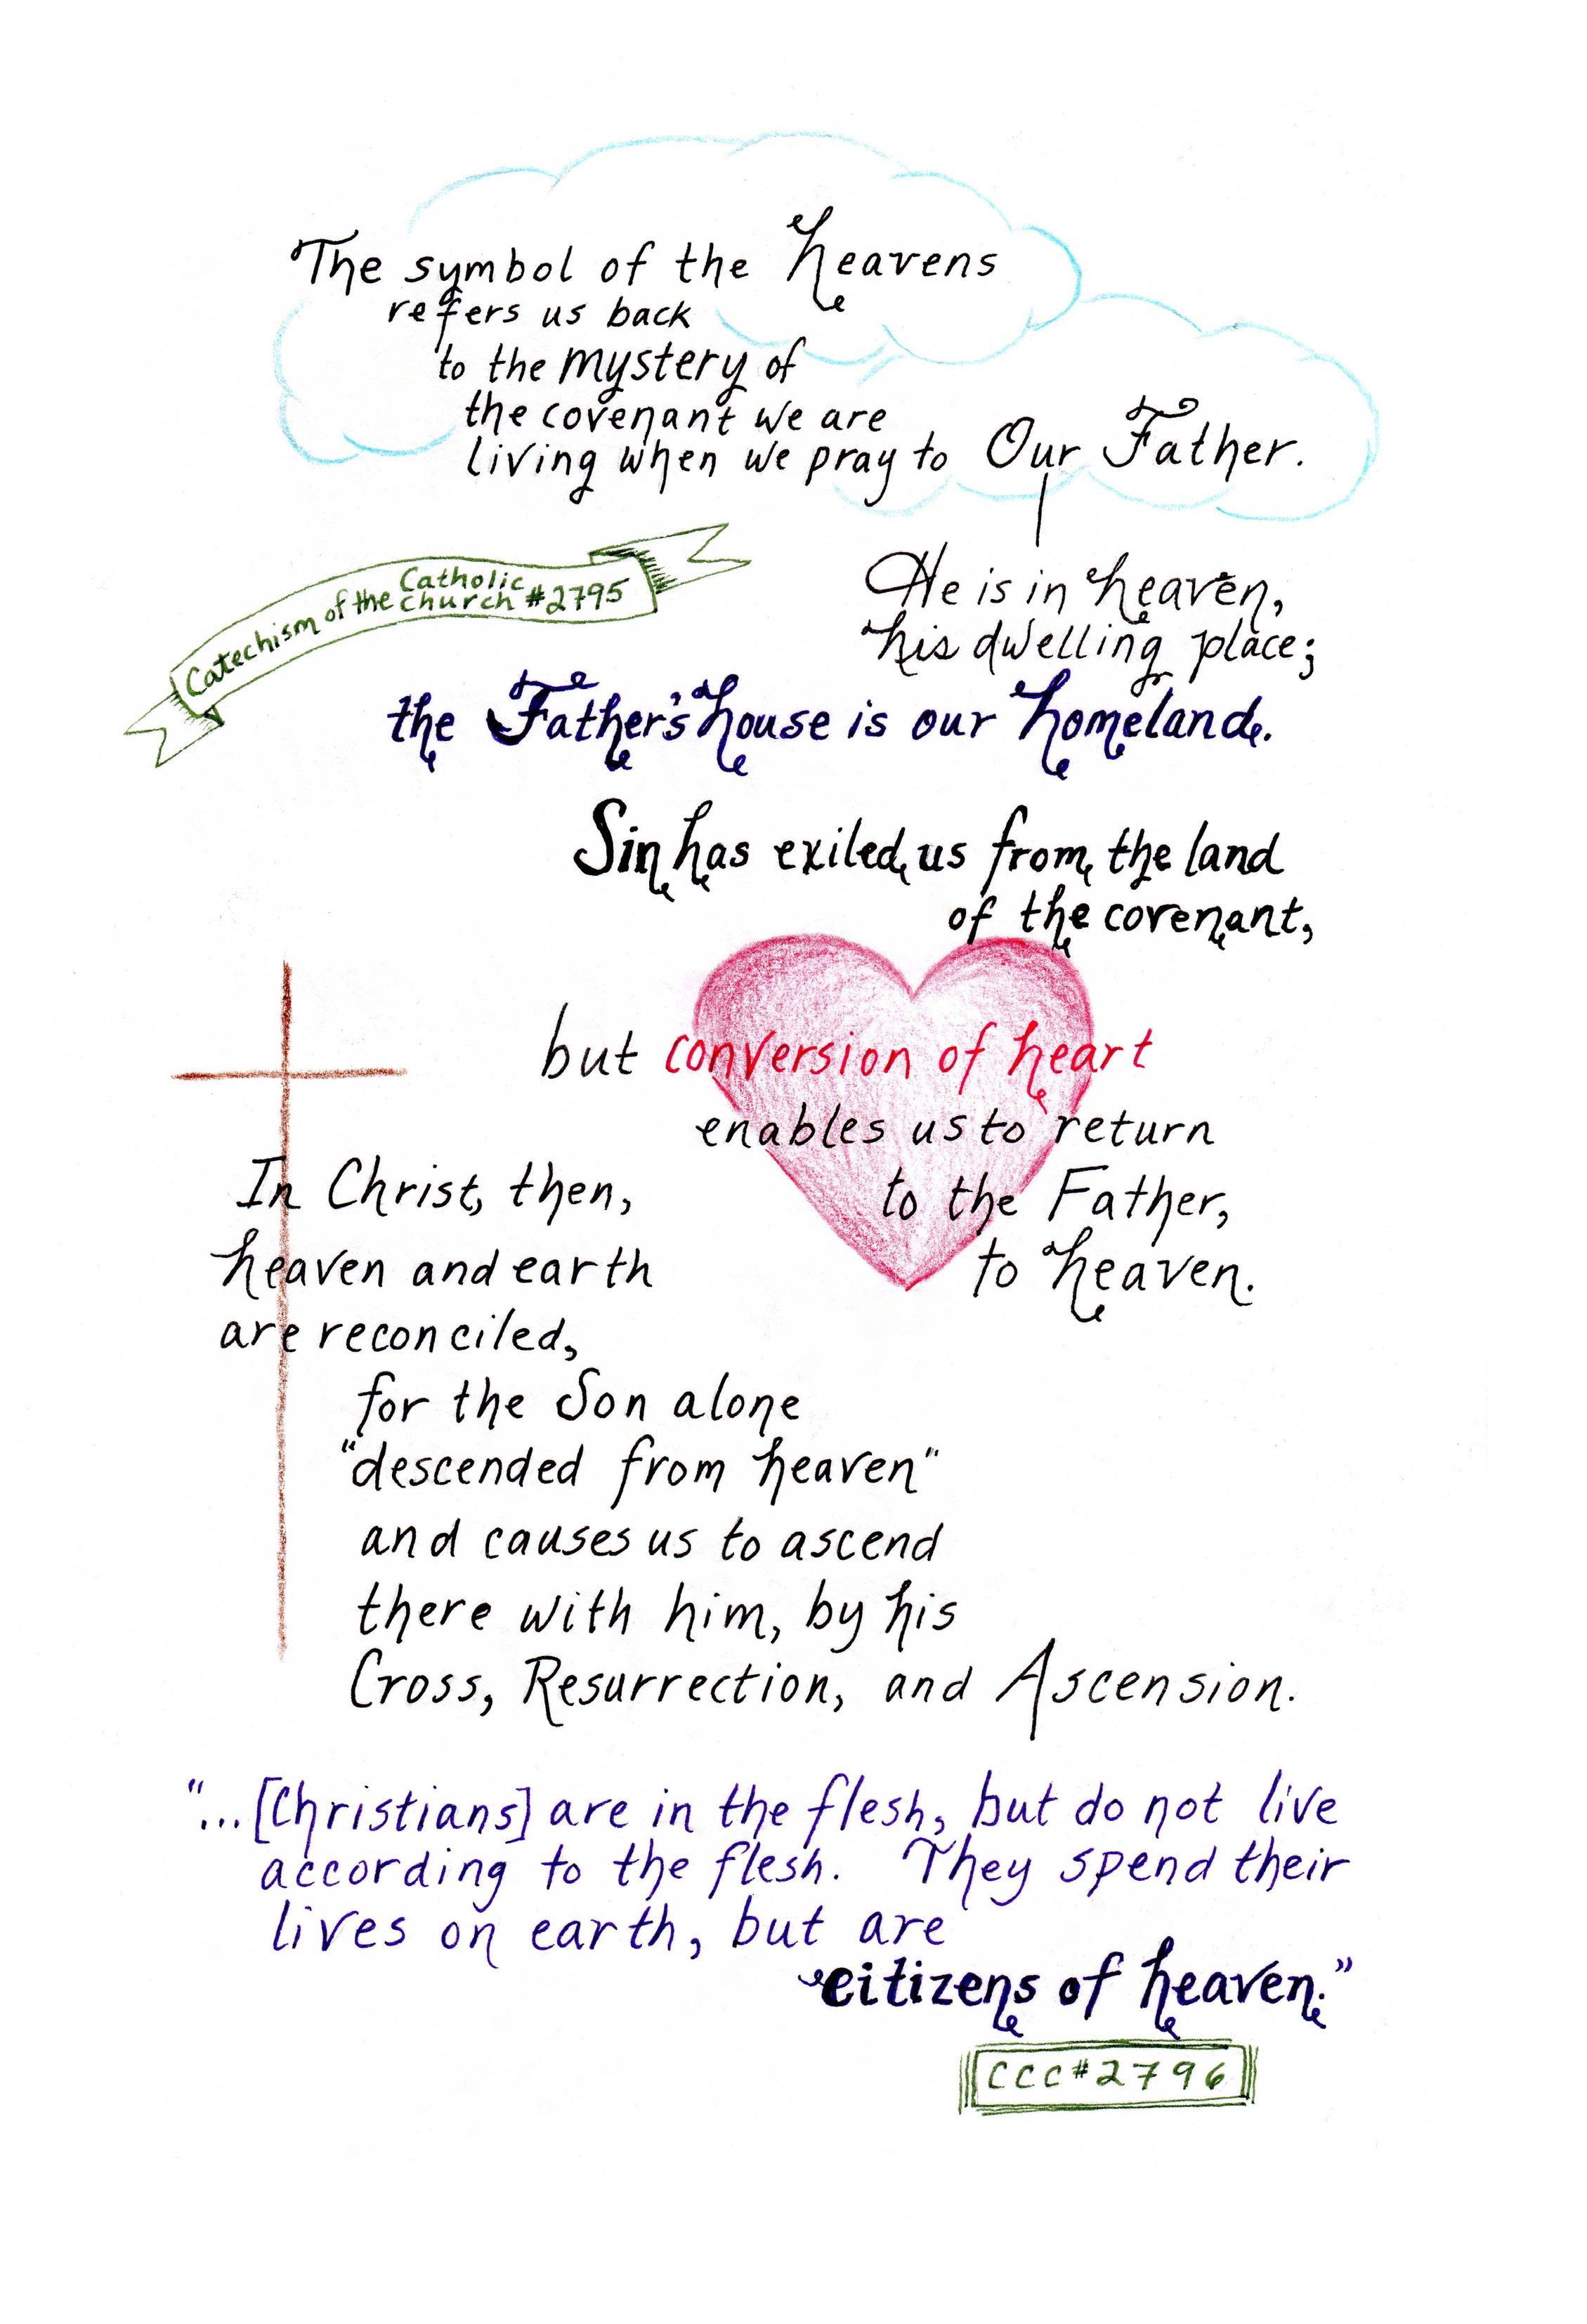 The symbol of the heavens
refers us back
to the mystery of
the covenant we are
living when we pray to Our Father.
Catechism of the Catholic Church #2795
He is in heaven,
his dwelling place;
the Father's house is our homeland.
Sin has exiled us from the land
of the covenant,
but conversion of heart
enables us to return
to the Father,
to heaven.
In Christ, then,
heaven and earth
are reconciled,
for the Son alone
"descended from heaven"
and causes us to ascend
there with him, by his
Cross, Resurrection, and Ascension.
"...[Christians] are in the flesh, but do not live
according to the flesh. They spend their
lives on earth, but are
citizens of heaven."
CCC#2796